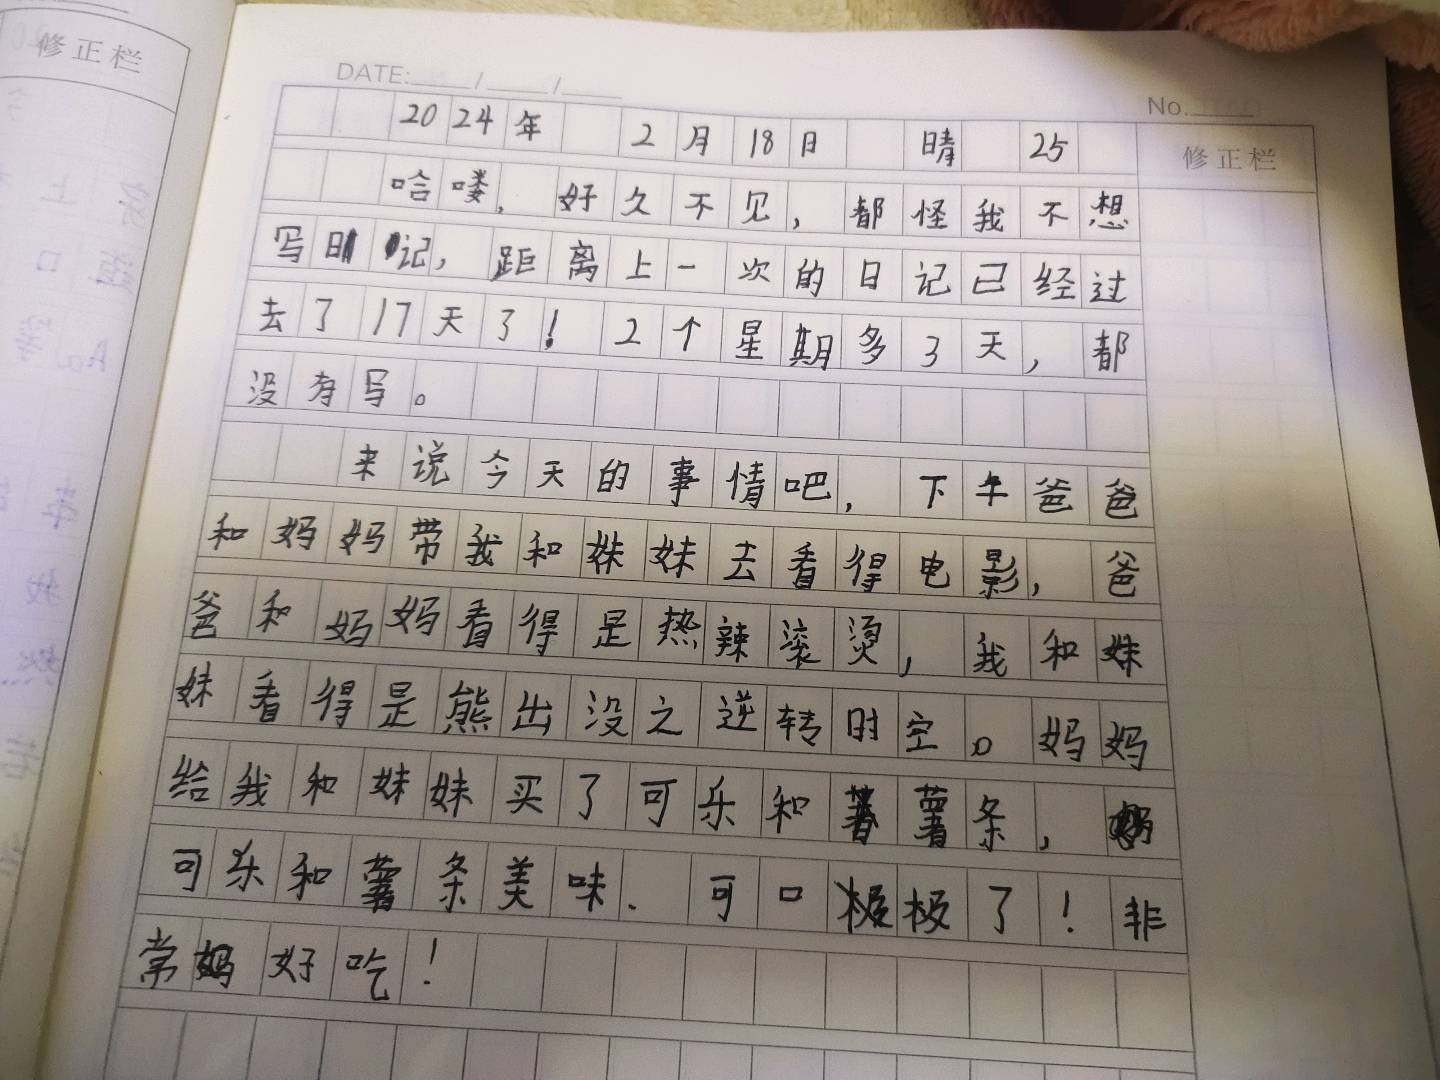 修正栏
DATE: / /
No.
修正栏
2024年 2月18日 晴 25
哈喽，好久不见，都怪我不想
写日记，距离上一次的日记已经过
去了17天了！2个星期多3天，都
没有写。
来说今天的事情吧，下午爸爸
和妈妈带我和妹妹去看得电影，爸
爸和妈妈看得是热辣滚烫，我和妹
妹看得是熊出没之逆转时空。妈妈
给我和妹妹买了可乐和薯薯条，
可乐和薯条美味、可口极极了！非
常好吃！